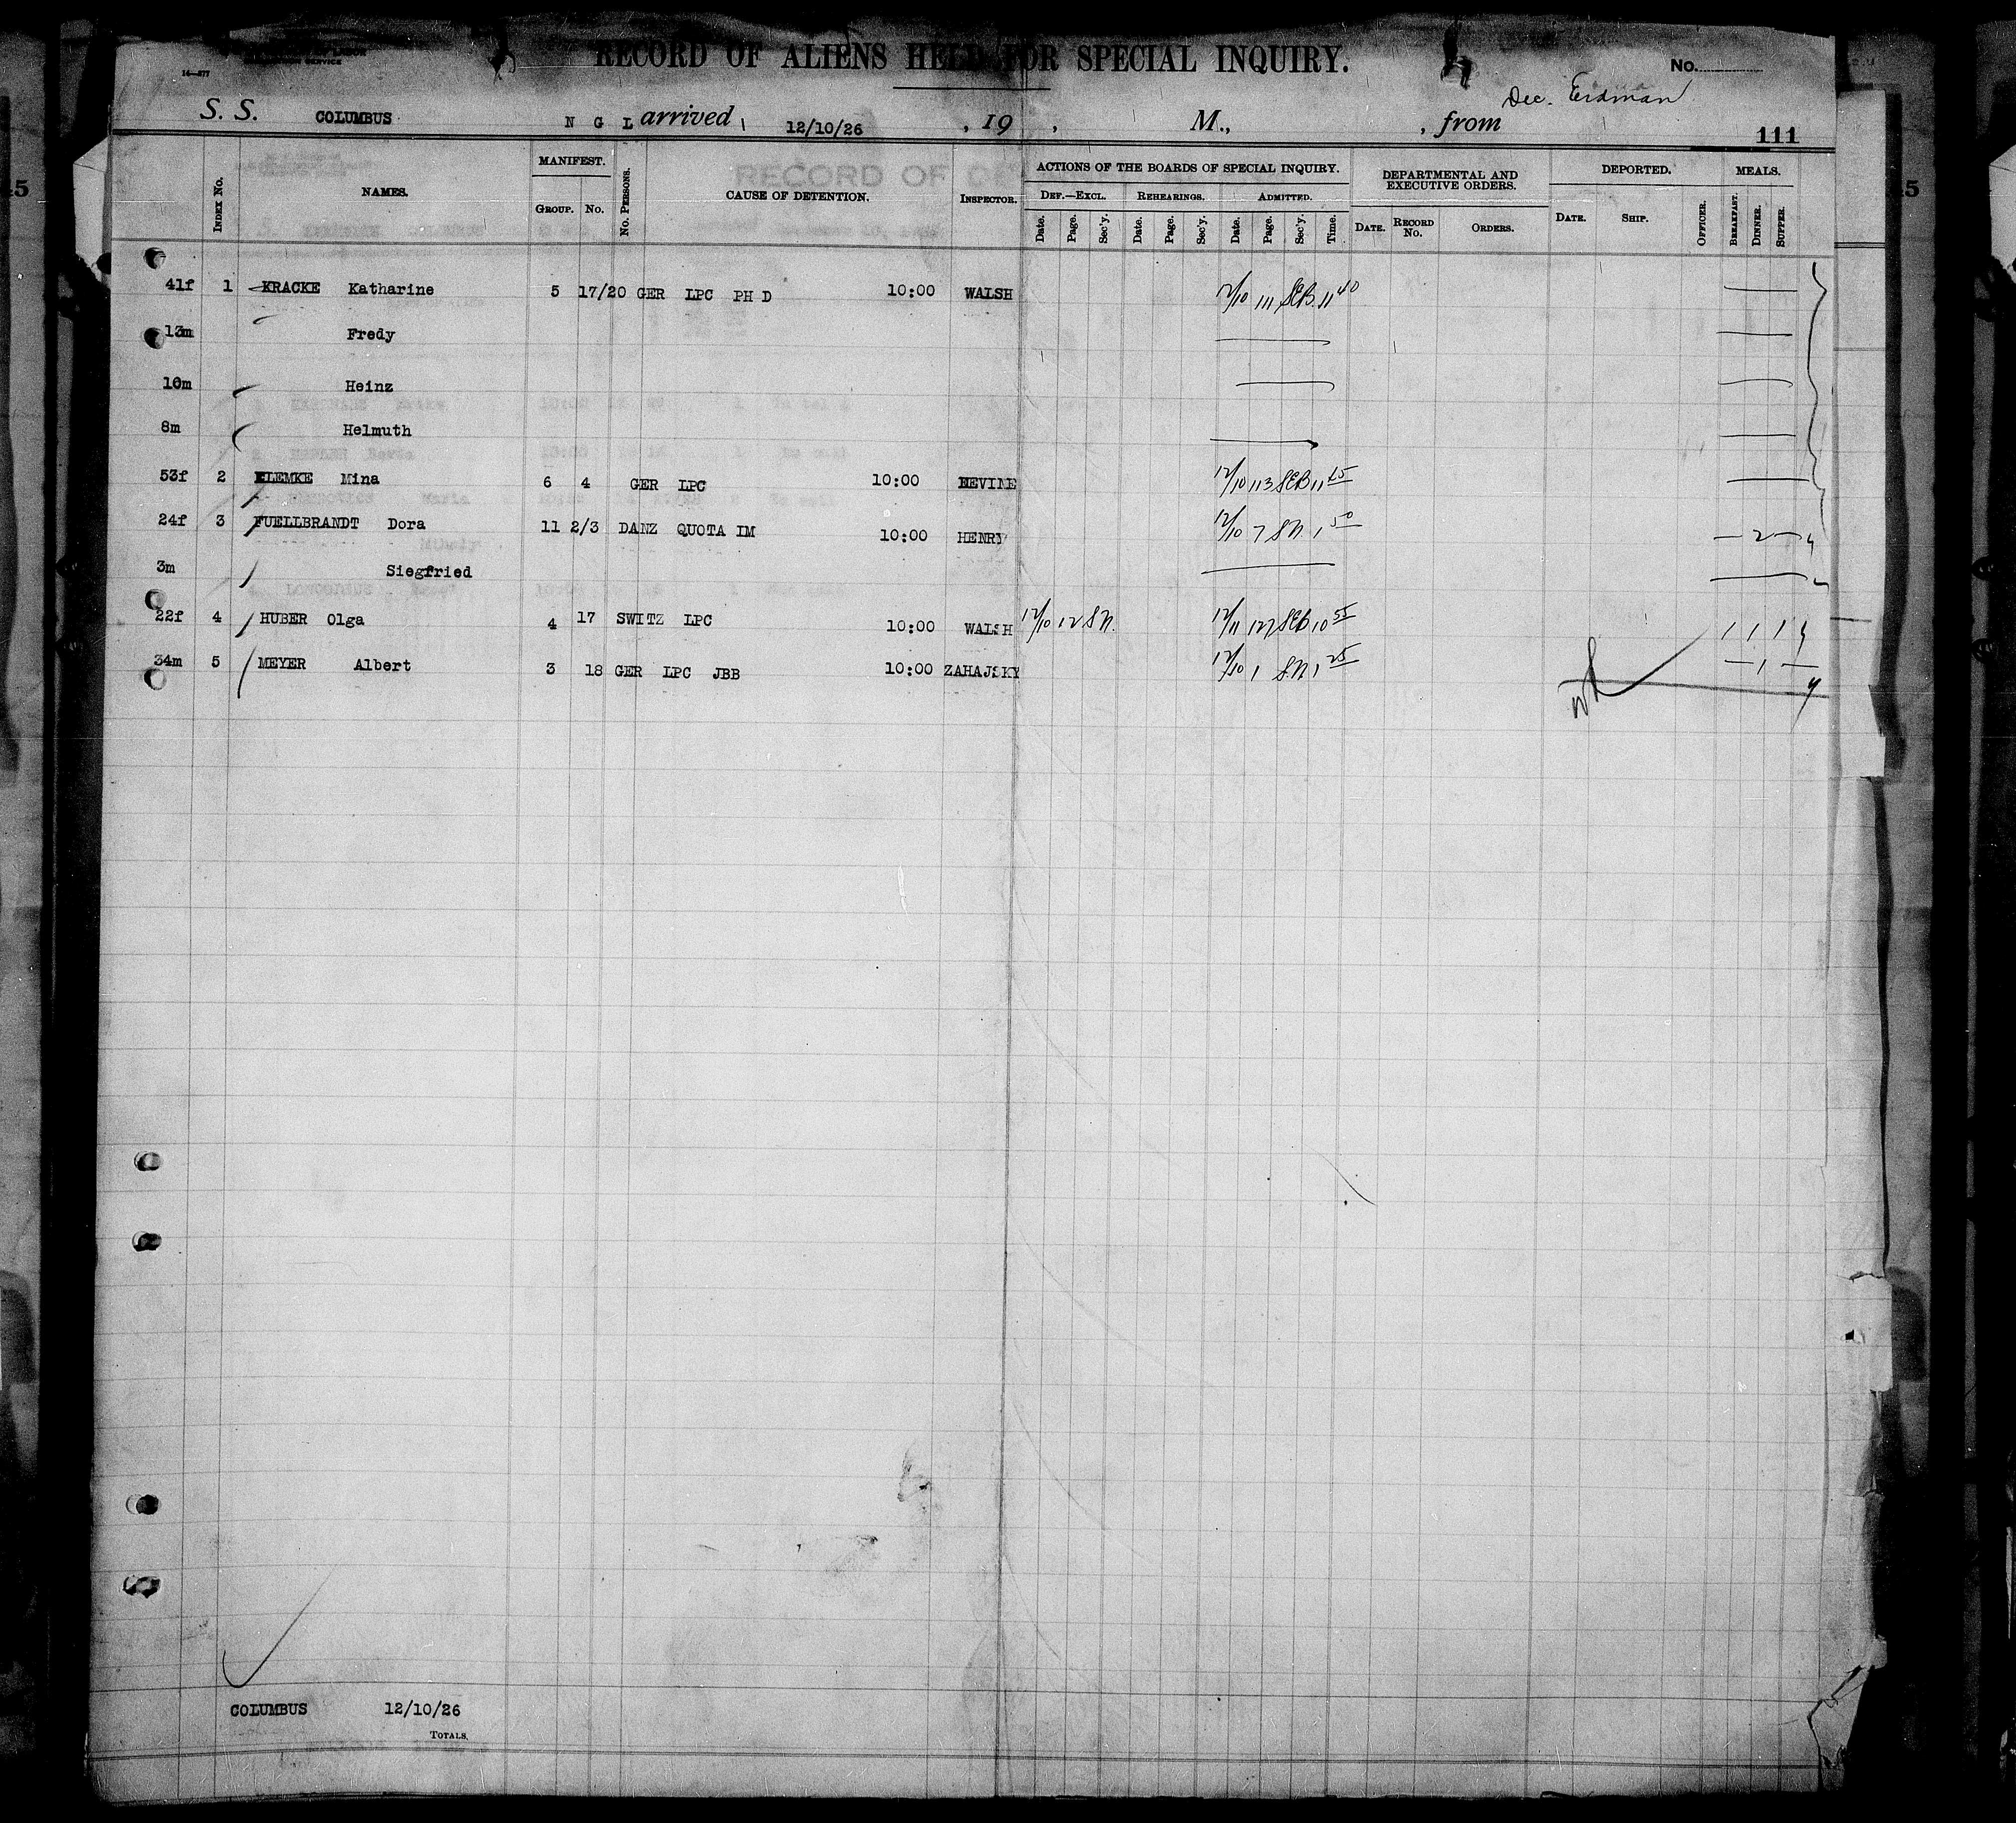 RECORD OF ALIENS HELD FOR SPECIAL INQUIRY.
14—877
No.
Dec. Erdman
S. S. COLUMBUS N G L arrived 12/10/26 , 19 , M., , from
111
INDEX No. NAMES. MANIFEST. GROUP. No. No. PERSONS. CAUSE OF DETENTION. INSPECTOR. ACTIONS OF THE BOARDS OF SPECIAL INQUIRY. DEPARTMENTAL AND EXECUTIVE ORDERS. DEPORTED. MEALS.
DEF.—EXCL. REHEARINGS. ADMITTED.
Date. Page. Sec'y. Date. Page. Sec'y. Date. Page. Sec'y. Time. DATE. RECORD No. ORDERS. DATE. SHIP. OFFICER. BREAKFAST. DINNER. SUPPER.
41f 1 KRACKE Katharine 5 17/20 GER LPC PH D 10:00 WALSH 12/10 111 SEB 11 40
13m Fredy
10m Heinz
8m Helmuth
53f 2 KLEMKE Mina 6 4 GER LPC 10:00 DEVINE 12/10 113 SEB 11 45
24f 3 FUELLBRANDT Dora 11 2/3 DANZ QUOTA IM 10:00 HENRY 12/10 7 S.N. 1 50 — 2 —
3m Siegfried
22f 4 HUBER Olga 4 17 SWITZ LPC 10:00 WALSH 12/10 12 S.N. 12/11 127 SEB 10 55 1 1 1
34m 5 MEYER Albert 3 18 GER LPC JBB 10:00 ZAHAJSKY 12/10 1 S.N. 1 25 — 1 —
COLUMBUS 12/10/26
TOTALS.